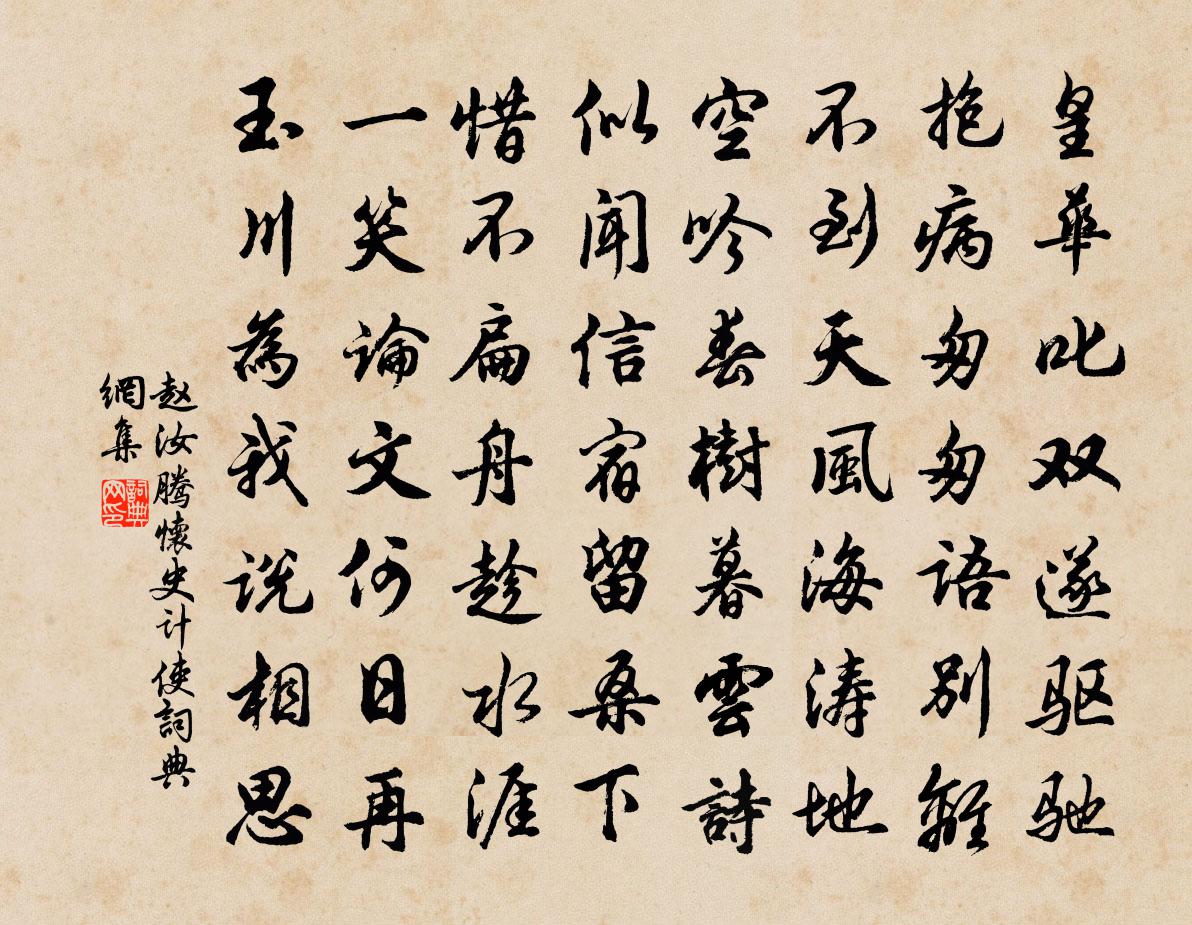 皇華叱双遂驱驰
抱病匆匆語别離
不到天風海涛地
空吟春樹暮雲詩
似闻信宿留桑下
惜不扁舟趁水涯
一笑論文何日再
玉川為我説相思
赵汝腾懷史计使詞典
網集
詞典
网印